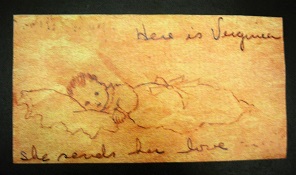 Here is Virginia
she sends her love